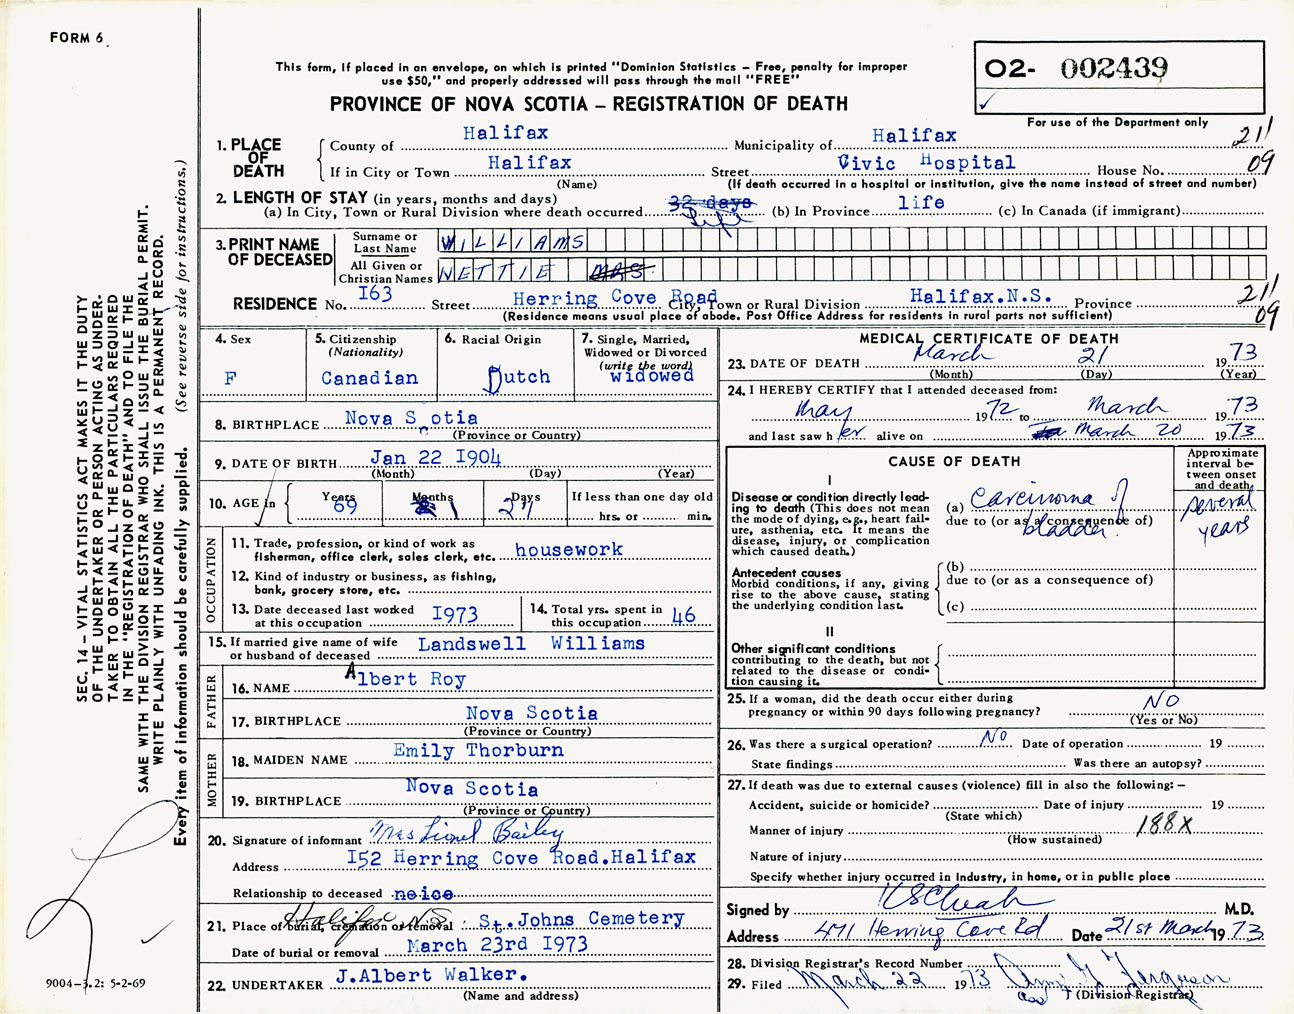 FORM 6
This form, if placed in an envelope, on which is printed "Dominion Statistics – Free, penalty for improper
use $50," and properly addressed will pass through the mail "FREE"
PROVINCE OF NOVA SCOTIA – REGISTRATION OF DEATH
O2- 002439
✓
For use of the Department only
1. PLACE OF DEATH
County of Halifax Municipality of Halifax 211
If in City or Town Halifax Street Civic Hospital House No. 09
(Name) (If death occurred in a hospital or institution, give the name instead of street and number)
2. LENGTH OF STAY (in years, months and days)
(a) In City, Town or Rural Division where death occurred 32 days Life (b) In Province life (c) In Canada (if immigrant)
3. PRINT NAME OF DECEASED
Surname or Last Name WILLIAMS
All Given or Christian Names NETTIE MRS.
RESIDENCE No. I63 Street Herring Cove Road City, Town or Rural Division Halifax.N.S. Province 211
(Residence means usual place of abode. Post Office Address for residents in rural parts not sufficient) 09
4. Sex
F
5. Citizenship
(Nationality)
Canadian
6. Racial Origin
Dutch
7. Single, Married,
Widowed or Divorced
(write the word)
widowed
8. BIRTHPLACE Nova Scotia
(Province or Country)
9. DATE OF BIRTH Jan 22 I904
(Month) (Day) (Year)
10. AGE in
Years Months Days If less than one day old
69 1 27 hrs. or min.
OCCUPATION
11. Trade, profession, or kind of work as
fisherman, office clerk, sales clerk, etc. housework
12. Kind of industry or business, as fishing,
bank, grocery store, etc.
13. Date deceased last worked
at this occupation I973
14. Total yrs. spent in
this occupation 46
15. If married give name of wife
or husband of deceased Landswell Williams
FATHER
16. NAME Albert Roy
17. BIRTHPLACE Nova Scotia
(Province or Country)
MOTHER
18. MAIDEN NAME Emily Thorburn
19. BIRTHPLACE Nova Scotia
(Province or Country)
20. Signature of informant Mrs Lionel Bailey
Address I52 Herring Cove Road.Halifax
Relationship to deceased neice
21. Place of burial, cremation or removal Halifax N.S. St.Johns Cemetery
Date of burial or removal March 23rd I973
22. UNDERTAKER J.Albert Walker.
(Name and address)
MEDICAL CERTIFICATE OF DEATH
23. DATE OF DEATH March 21 1973
(Month) (Day) (Year)
24. I HEREBY CERTIFY that I attended deceased from:
May 1972 to March 1973
and last saw her alive on March 20 1973
CAUSE OF DEATH
Approximate
interval be-
tween onset
and death
I
Disease or condition directly lead-
ing to death (This does not mean
the mode of dying, e.g., heart fail-
ure, asthenia, etc. It means the
disease, injury, or complication
which caused death.)
(a) Carcinoma of
due to (or as a consequence of)
bladder.
several
years
Antecedent causes
Morbid conditions, if any, giving
rise to the above cause, stating
the underlying condition last.
(b)
due to (or as a consequence of)
(c)
II
Other significant conditions
contributing to the death, but not
related to the disease or condi-
tion causing it.
25. If a woman, did the death occur either during
pregnancy or within 90 days following pregnancy? NO
(Yes or No)
26. Was there a surgical operation? No Date of operation 19
State findings Was there an autopsy?
27. If death was due to external causes (violence) fill in also the following: –
Accident, suicide or homicide? Date of injury 19
(State which)
Manner of injury 188X
(How sustained)
Nature of injury
Specify whether injury occurred in industry, in home, or in public place
Signed by M.D.
Address 471 Herring Cove Rd Date 21st March 1973
28. Division Registrar's Record Number
29. Filed March 22 1973 Ferguson
(Division Registrar)
SEC. 14 – VITAL STATISTICS ACT MAKES IT THE DUTY
OF THE UNDERTAKER OR PERSON ACTING AS UNDER-
TAKER TO OBTAIN ALL THE PARTICULARS REQUIRED
IN THE "REGISTRATION OF DEATH" AND TO FILE THE
SAME WITH THE DIVISION REGISTRAR WHO SHALL ISSUE THE BURIAL PERMIT.
WRITE PLAINLY WITH UNFADING INK. THIS IS A PERMANENT RECORD.
Every item of information should be carefully supplied. (See reverse side for instructions.)
9004-3.2: 5-2-69